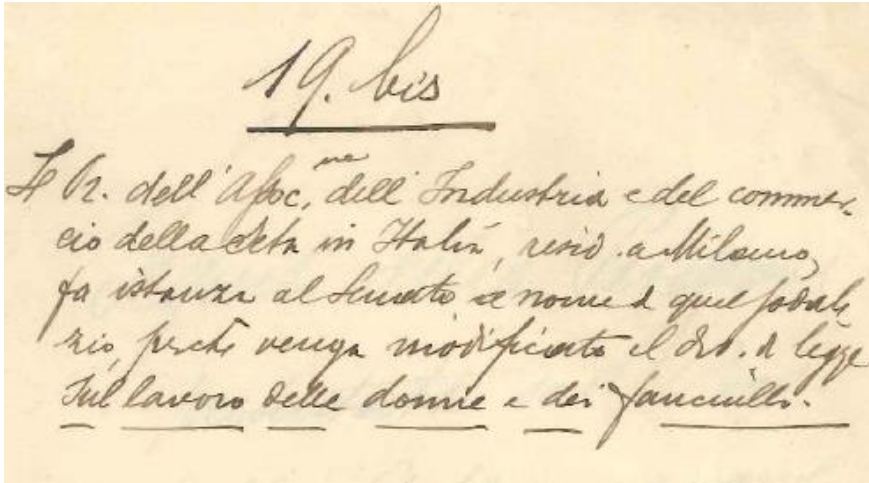 19. bis
Il P. dell'Assoc.ne dell'Industria e del commer-
cio della seta in Italia, resid. a Milano,
fa istanza al Senato a nome d quel sodali
zio, perchè venga modificato il dis. d legge
sul lavoro delle donne e dei fanciulli.